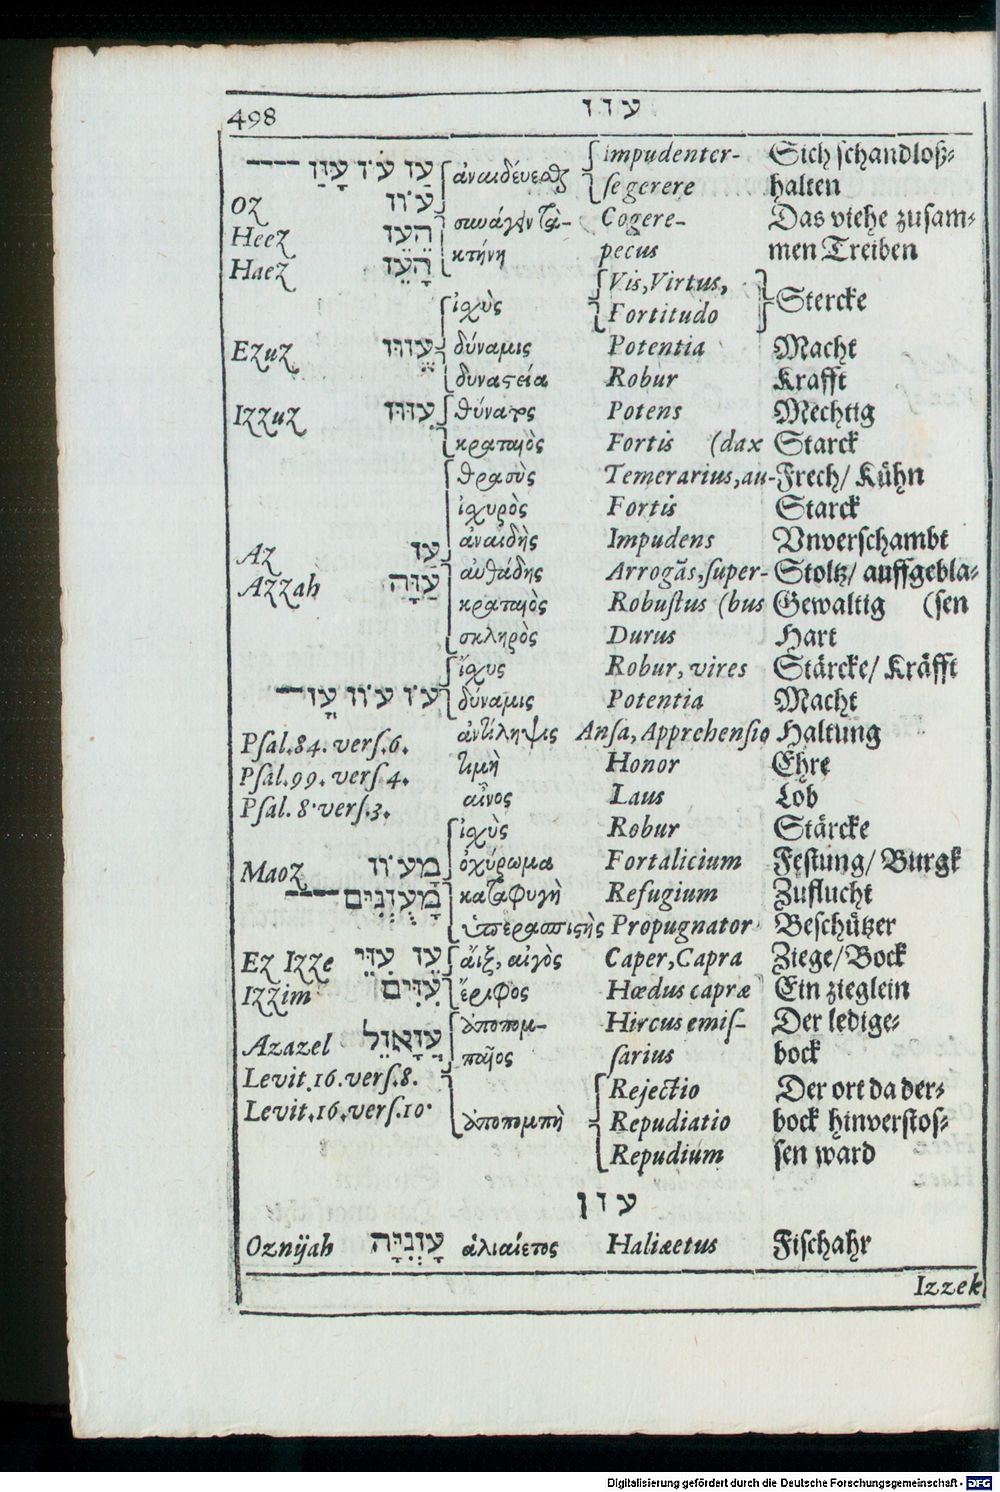 498 עזז
עַז עֹז עָזַז ἀναιδέυεσθζ Impudenter- Sich schandloß-
Oz עֹוז se gerere halten
Heez הֵעֵז συνάγειν τὰ- Cogere- Das viehe zusam-
Haez הָעֵז κτήνη pecus men Treiben
Vis, Virtus,
ἰχὺς Fortitudo Stercke
Ezuz עֱזוּז δύναμις Potentia Macht
δυναςεία Robur Krafft
Izzuz עִזּוּז Potens Mechtig
κραταιὸς Fortis (dax Starck
θρασὺς Temerarius, au- Frech/ Kühn
ἰχυρὸς Fortis Starck
Az עַז ἀναιδὴς Impudens Vnverschambt
Azzah עַזָּה αὐθάδης Arrogãs, super- Stoltz/ auffgebla-
κραταιὸς Robustus (bus Gewaltig (sen
σκληρὸς Durus Hart
ἴχυς Robur, vires Stärcke/ Kräfft
עֹז עֹוז δύναμις Potentia Macht
Psal. 84. vers. 6. ἀντίληψις Ansa, Apprehensio Haltung
Psal. 99. vers 4. τιμὴ Honor Ehre
Psal. 8. vers. 3. αἶνος Laus Lob
ἰχὺς Robur Stärcke
Maoz מָעֹוז ὀχύρωμα Fortalicium Festung/ Burgk
מָעֻזְנִים καταφυγὴ Refugium Zuflucht
ὑπερασπιςὴς Propugnator Beschützer
Ez Izze עֵז עִזֵּי ἄιξ, αἰγὸς Caper, Capra Ziege/ Bock
Izzim עִזִּים ἔριφος Hœdus capræ Ein zieglein
ἀποπομ- Hircus emis- Der ledige-
Azazel עֲזָאזֵל παῖος sarius bock
Levit. 16. vers. 8. Rejectio Der ort da der-
Levit. 16. vers. 10. ἀποπομπὴ Repudiatio bock hinverstos-
Repudium sen ward
עזן
Oznijah עָזְנִיָּה ἁλιαίετος Haliæetus Fischahr
Izzek
Digitalisierung gefördert durch die Deutsche Forschungsgemeinschaft - DFG